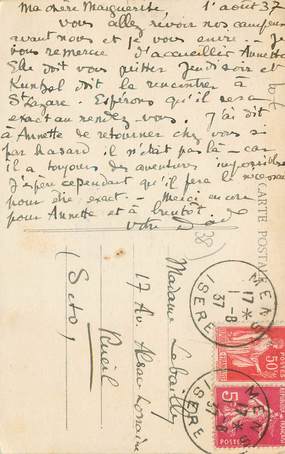 Ma chère Marguerite, 1 août 37
Vous allez revoir nos campeurs
avant nous et je vous envie. Je
vous remercie d'accueillir Annette
Elle doit vous quitter Jeudi soir et
doit la rencontrer à
St Lazare. Espérons qu'il sera
exact au rendez vous. J'ai dit
à Annette de retourner chez vous si
par hasard il n'était pas là - car
il a toujours des aventures impossibles
J'espère cependant qu'il fera le nécessaire
pour être exact. - Merci encore
pour Annette et à bientôt. de
CARTE POSTALE
Madame Lebailly
17 Av. Alsace-Lorraine
Rueil
(S et O)
MENS
17 *
1 - 8
37
ISERE
50c
POSTES
MENS
17 *
1 - 8
37
ISERE
5c